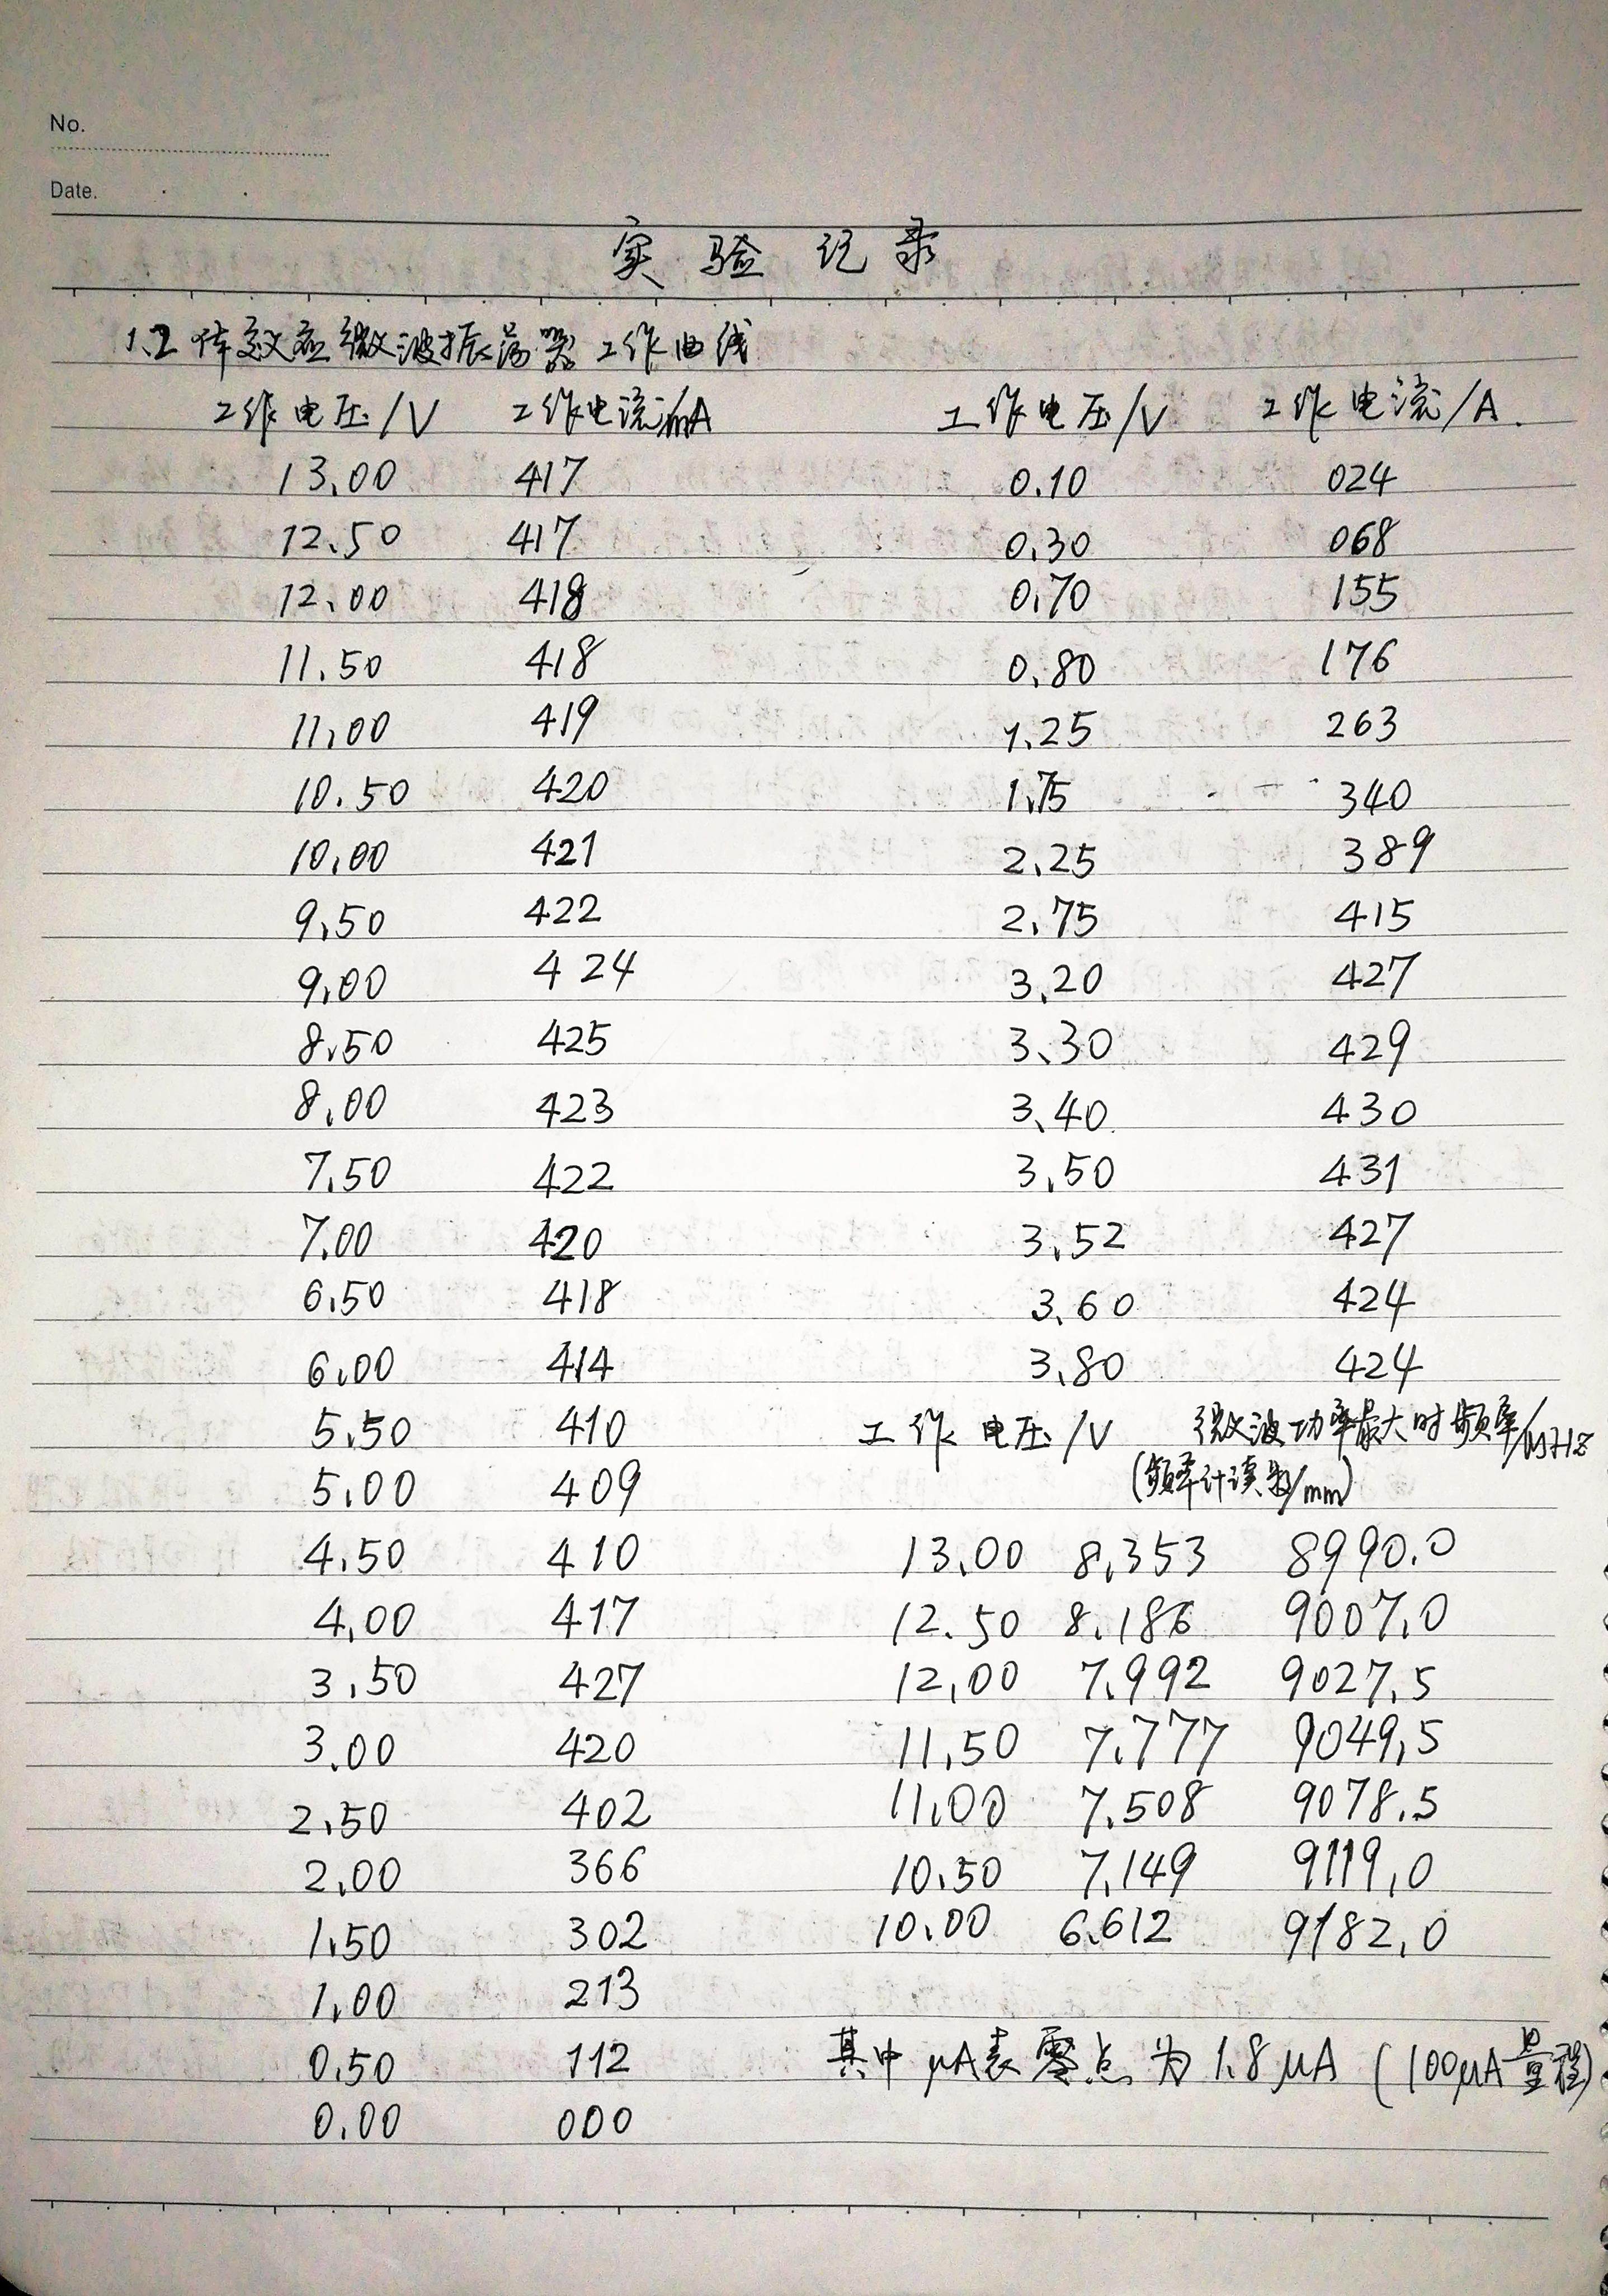 No.
Date.
实验记录
1.2 体效应微波振荡器工作曲线
工作电压/V 工作电流/mA
13.00 417
12.50 417
12.00 418
11.50 418
11.00 419
10.50 420
10.00 421
9.50 422
9.00 424
8.50 425
8.00 423
7.50 422
7.00 420
6.50 418
6.00 414
5.50 410
5.00 409
4.50 410
4.00 417
3.50 427
3.00 420
2.50 402
2.00 366
1.50 302
1.00 213
0.50 112
0.00 000
工作电压/V 工作电流/A.
0.10 024
0.30 068
0.70 155
0.80 176
1.25 263
1.75 340
2.25 389
2.75 415
3.20 427
3.30 429
3.40 430
3.50 431
3.52 427
3.60 424
3.80 424
工作电压/V 微波功率最大时频率/MHz
(频率计读数/mm)
13.00 8.353 8990.0
12.50 8.186 9007.0
12.00 7.992 9027.5
11.50 7.777 9049.5
11.00 7.508 9078.5
10.50 7.149 9119.0
10.00 6.612 9182.0
其中μA表零点为1.8μA (100μA量程)